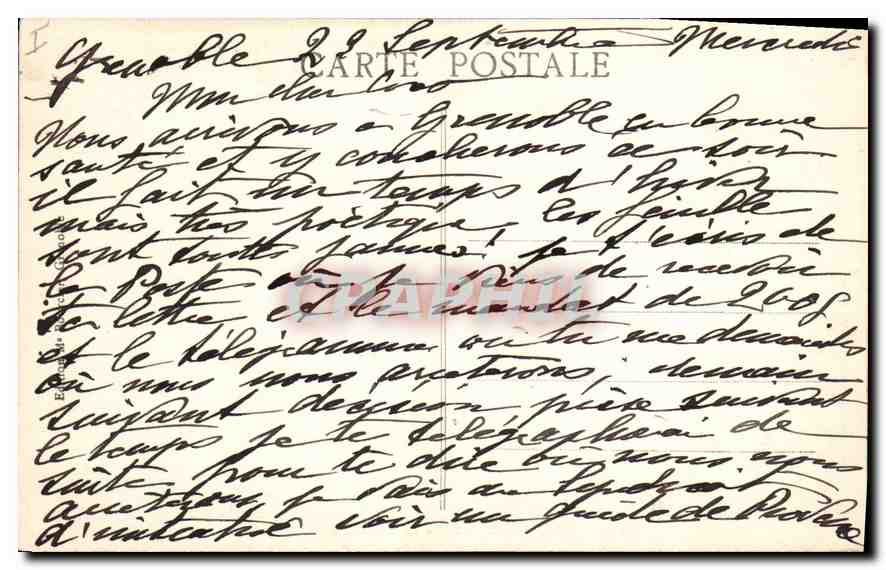 I
Grenoble 23 Septembre Mercredi
CARTE POSTALE
Mon cher Coco
Nous arrivons a Grenoble en bonne
santé et y coucherons ce soir
il fait un temps d'hiver
mais très poétique, les feuilles
sont toutes jaunes, je t'écris de
la Poste où je viens de recevoir
ta lettre et le mandat de 200f
et le télégramme où tu me demandes
où nous nous arreterons, demain
suivant décision prise suivant
le temps je te télégraphierai de
suite pour te dire où nous nous
arreterons je vais au Syndicat
d'initiative voir un guide de Provence
CPAPHIL